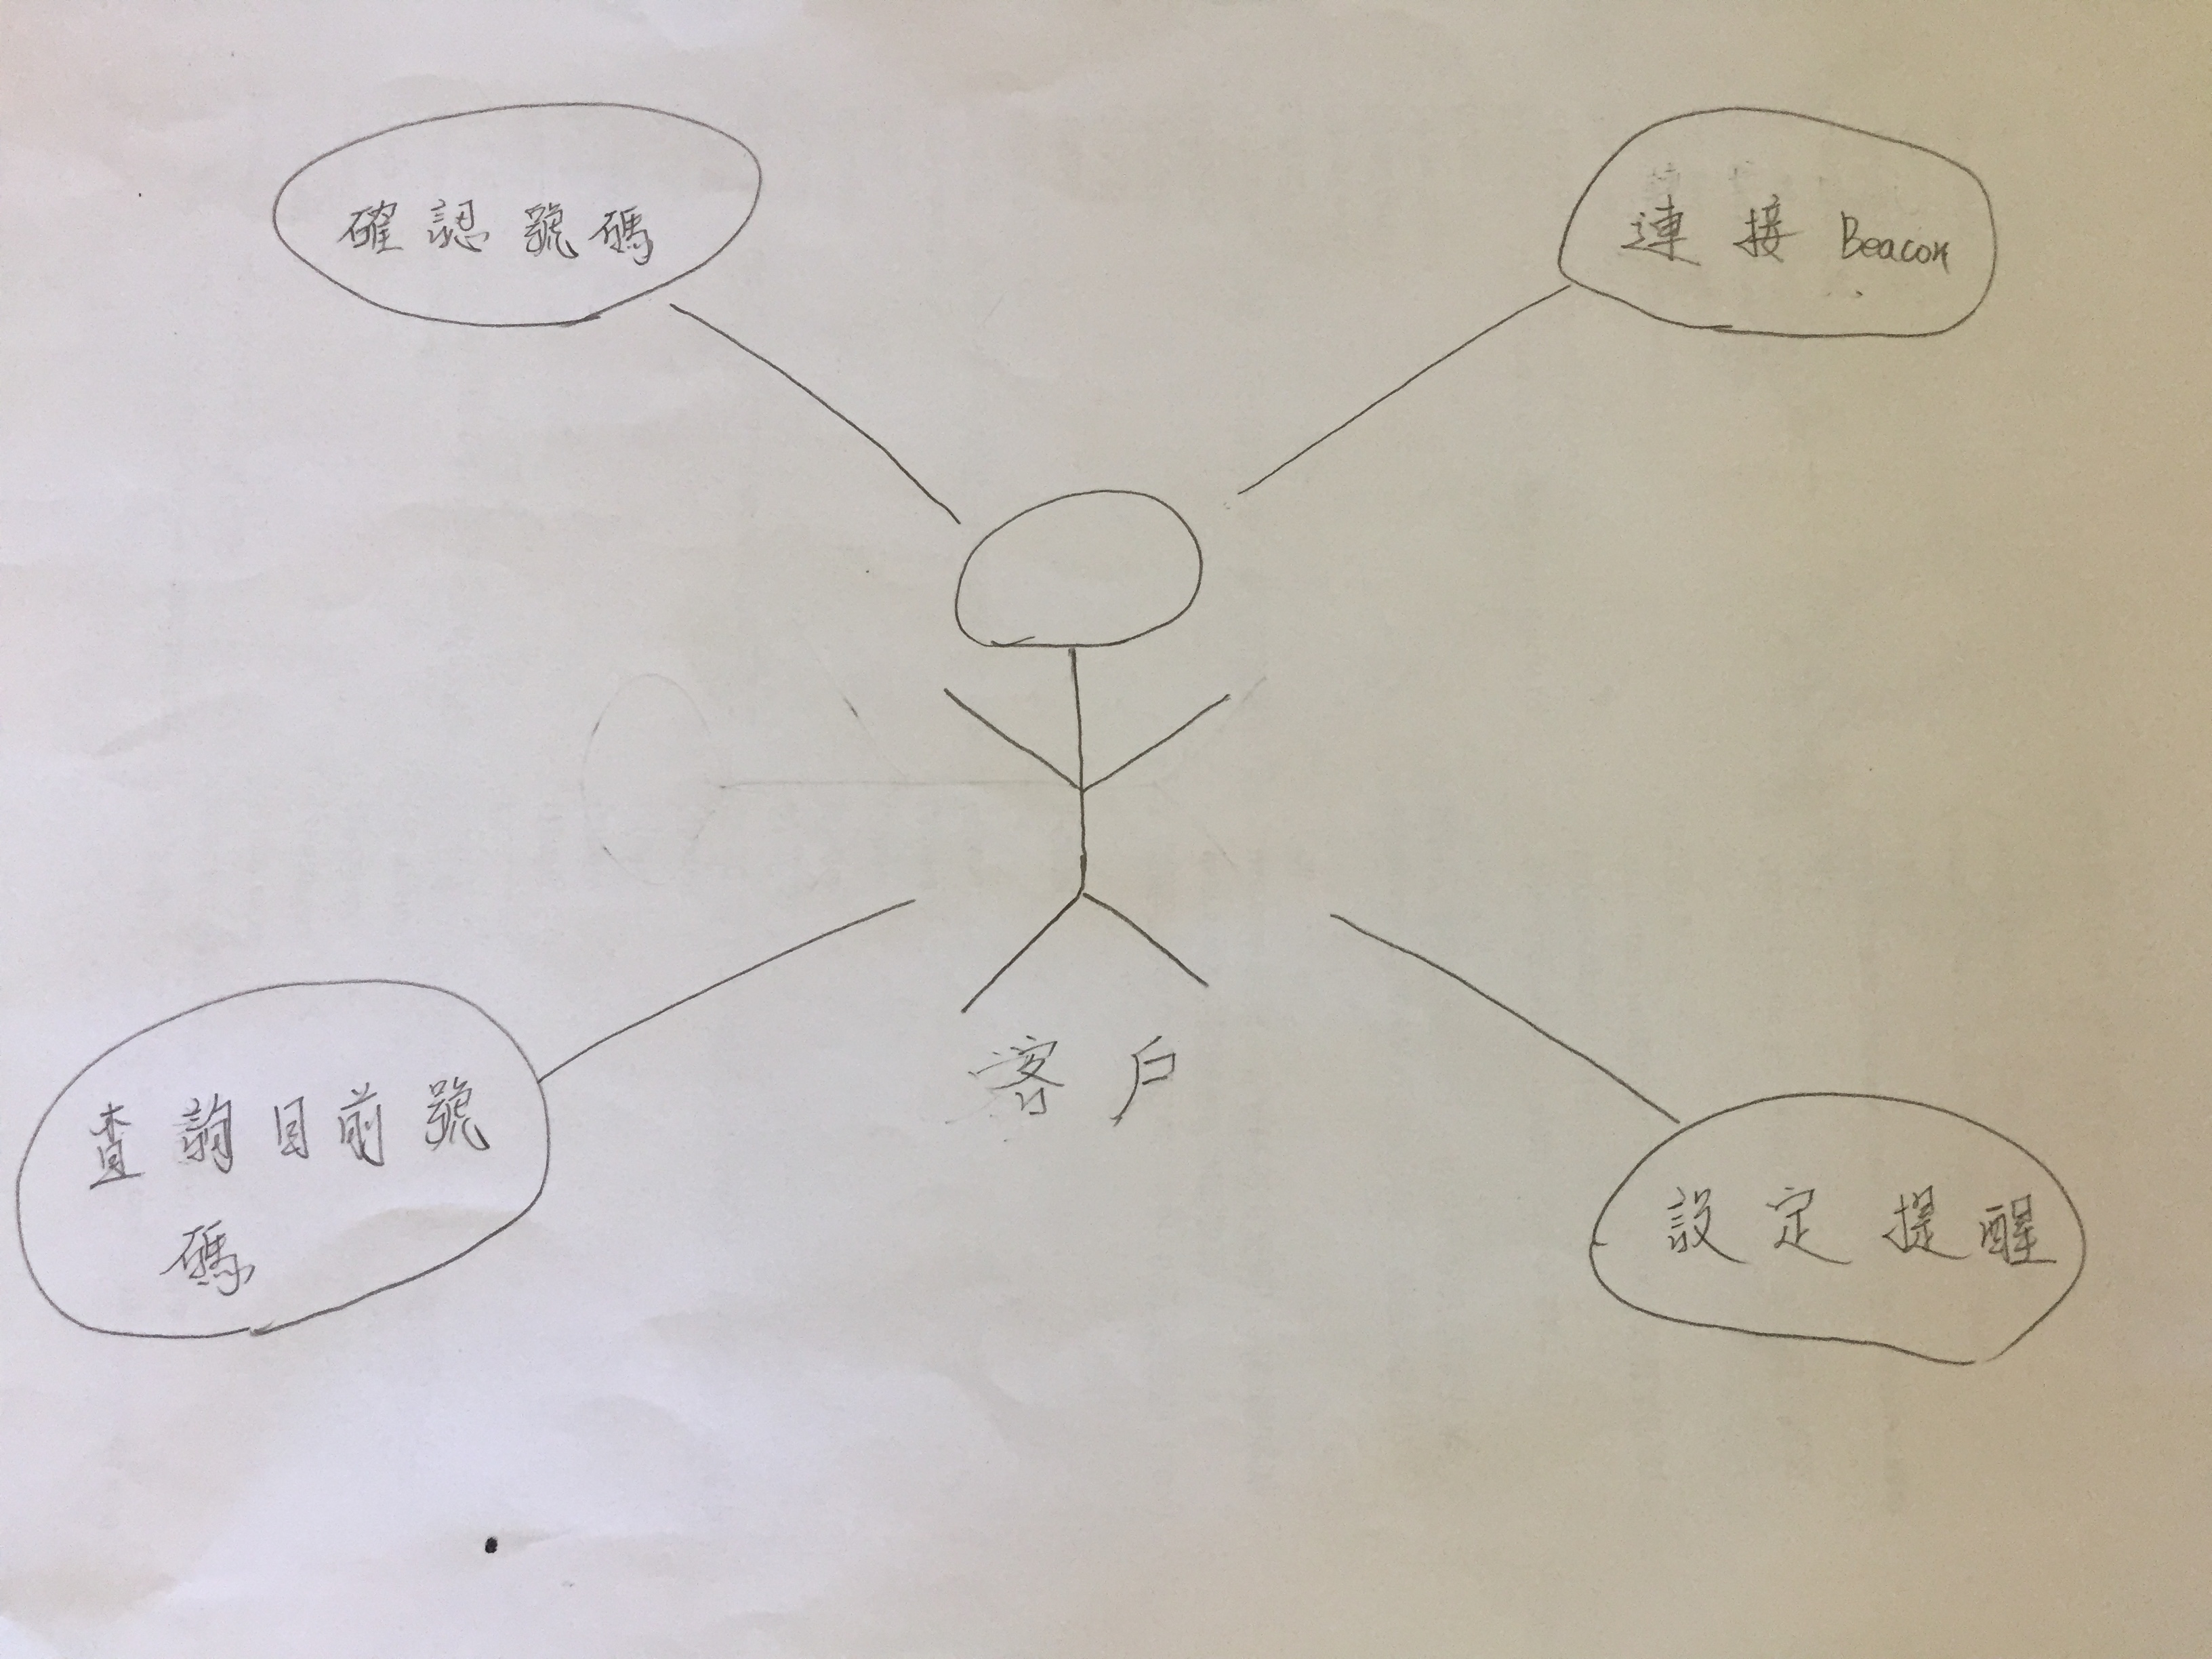 確認號碼
連接 Beacon
客戶
查詢目前號
碼
設定提醒